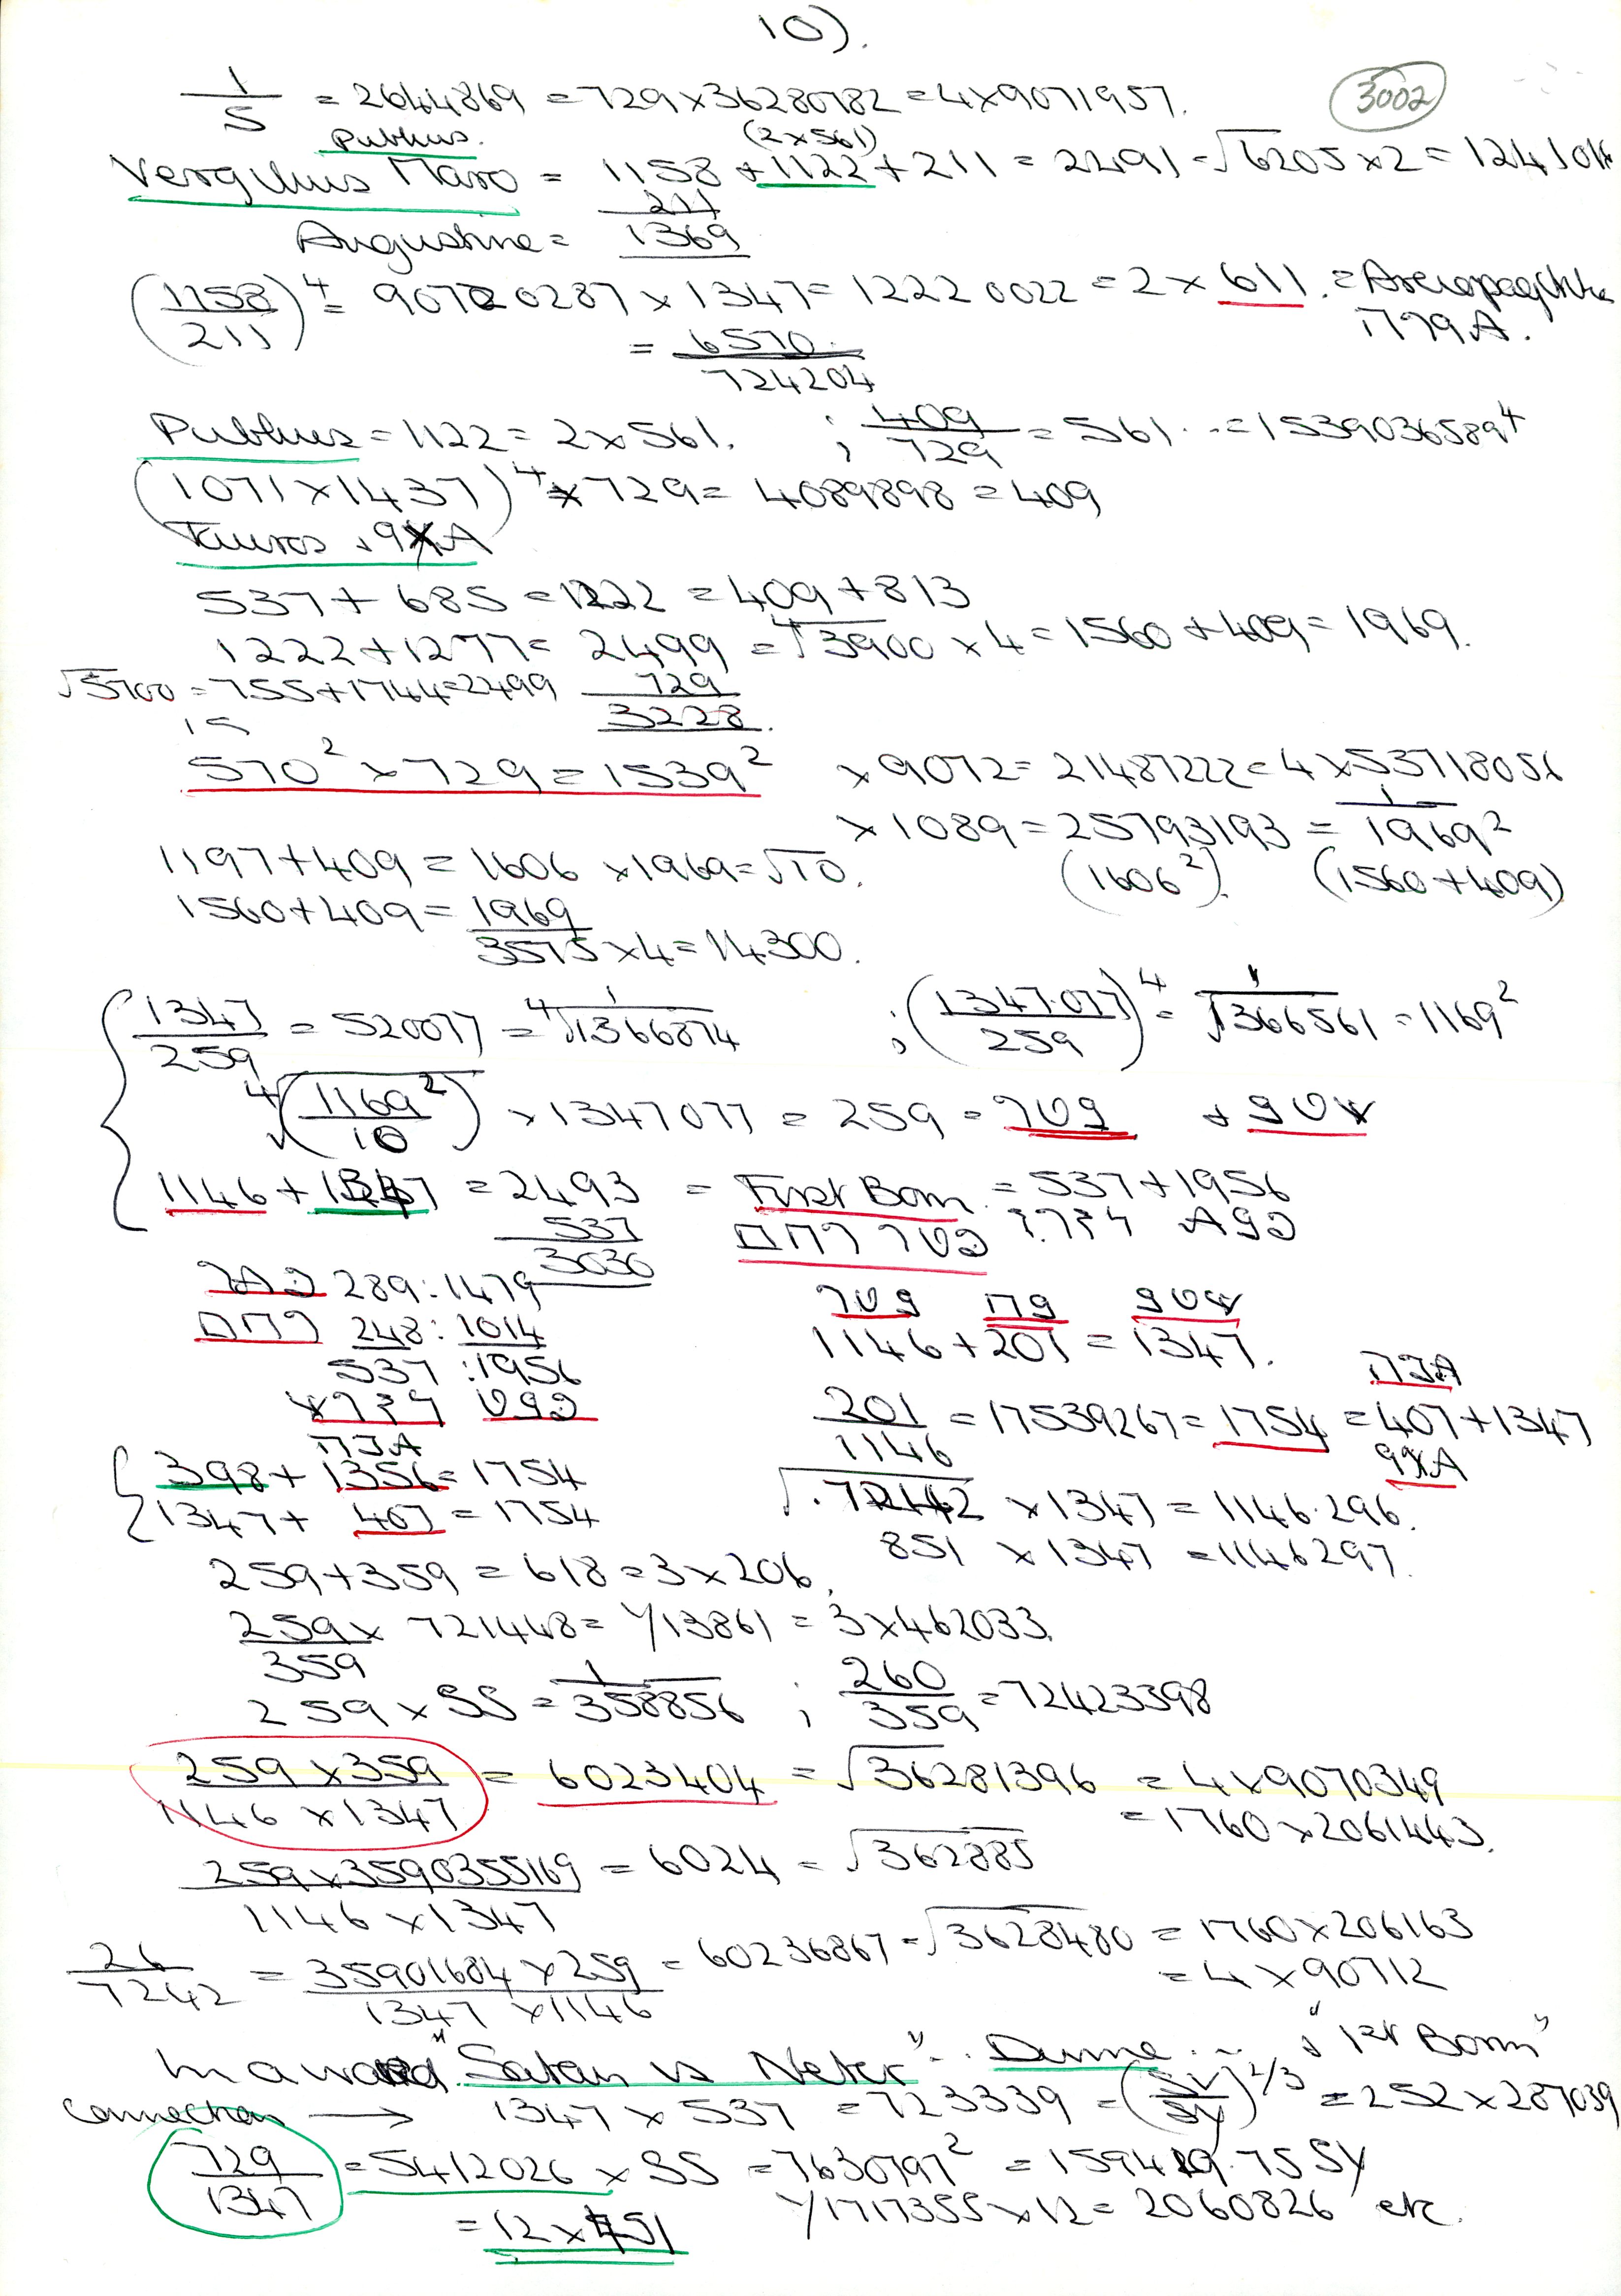 10).
3002
1/5 = 2644869 = 729 x 36280782 = 4 x 9071957.
Publius. (2 x 561)
Vergilius Maro = 1158 + 1122 + 211 = 2491 = √6205 x 2 = 12410
211
Augustine = 1369
(1158/211)⁴ = 90720287 x 1347 = 12220022 = 2 x 611. =
= 6570/724204
Publius = 1122 = 2 x 561. ; 409/729 = 561... = 1539036589⁴
(1071 x 1437)⁴ x 729 = 4089898 = 409
Tauros
537 + 685 = 1222 = 409 + 813
1222 + 1277 = 2499 = ⁴√3900 x 4 = 1560 + 409 = 1969.
√5700 = 755 + 1744 = 2499 729
15 3228.
570² x 729 = 1539² x 9072 = 21487222 = 4 x 53718056
x 1089 = 25793193 = 1/1969²
1197 + 409 = 1606 x 1969 = √10. (1606²). (1560 + 409)
1560 + 409 = 1969
3575 x 4 = 14300.
1347/259 = 520077 = ⁴√1/1366874 ; (1347.077/259)⁴ = 1/√1366561 = 1169²
⁴√(1169²/10) x 1347077 = 259 =
1146 + 1347 = 2493 = First Born = 537 + 1956
537
3030
289 : 1479
248 : 1014
537 : 1956
1146 + 201 = 1347.
201/1146 = 17539267 = 1754 = 407 + 1347
398 + 1356 = 1754
1347 + 407 = 1754
x 1347 = 1146.296.
851 x 1347 = 1146297.
259 + 359 = 618 = 3 x 206.
259/359 x 721448 = 1/13861 = 3 x 462033.
259 x SS = 1/358856 ; 260/359 = 72423398
259 x 359/1146 x 1347 = 6023404 = √36281396 = 4 x 9070349
= 1760 x 2061443.
259 x 3590355169/1146 x 1347 = 6024 = √362885
26/7242 = 35901684 x 259/1347 x 1146 = 60236867 = √3628480 = 1760 x 206163
= 4 x 90712
In a word "Satan is Neter" .. Divine ... "1st Born"
Connection → 1347 x 537 = 723339 = (SV/SY)2/3 = 252 x 287039
729/1347 = 5412026 x SS = 7630797² = 159419.75 SY
= 12 x 451 1/1717355 x 12 = 2060826 etc.